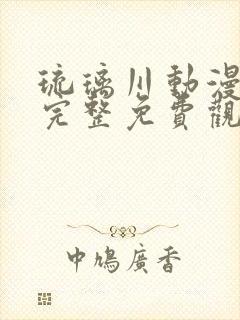 琉璃川動漫
完整免費觀
中鳩廣香